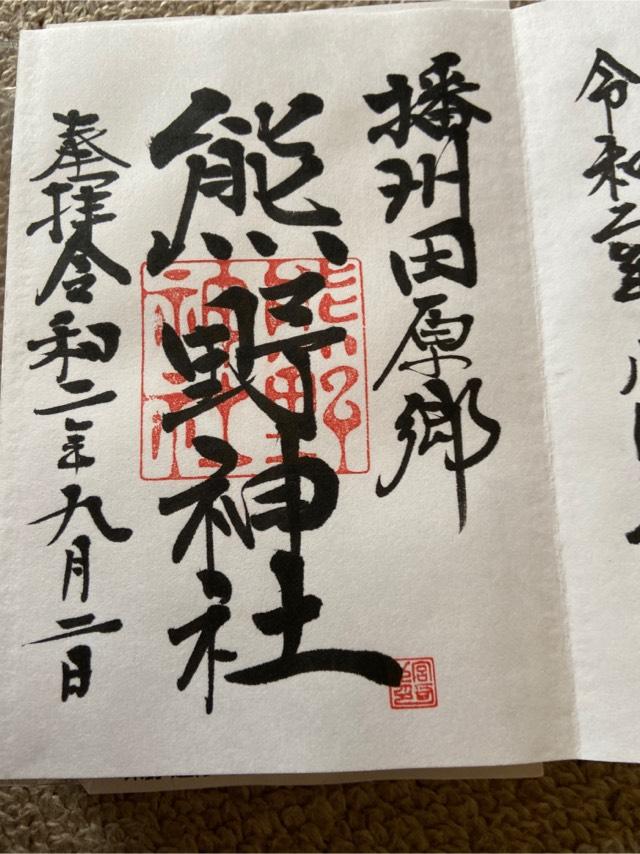 令和二
播州田原郷
熊野神社
熊野
神社
奉拝令和二年九月二日